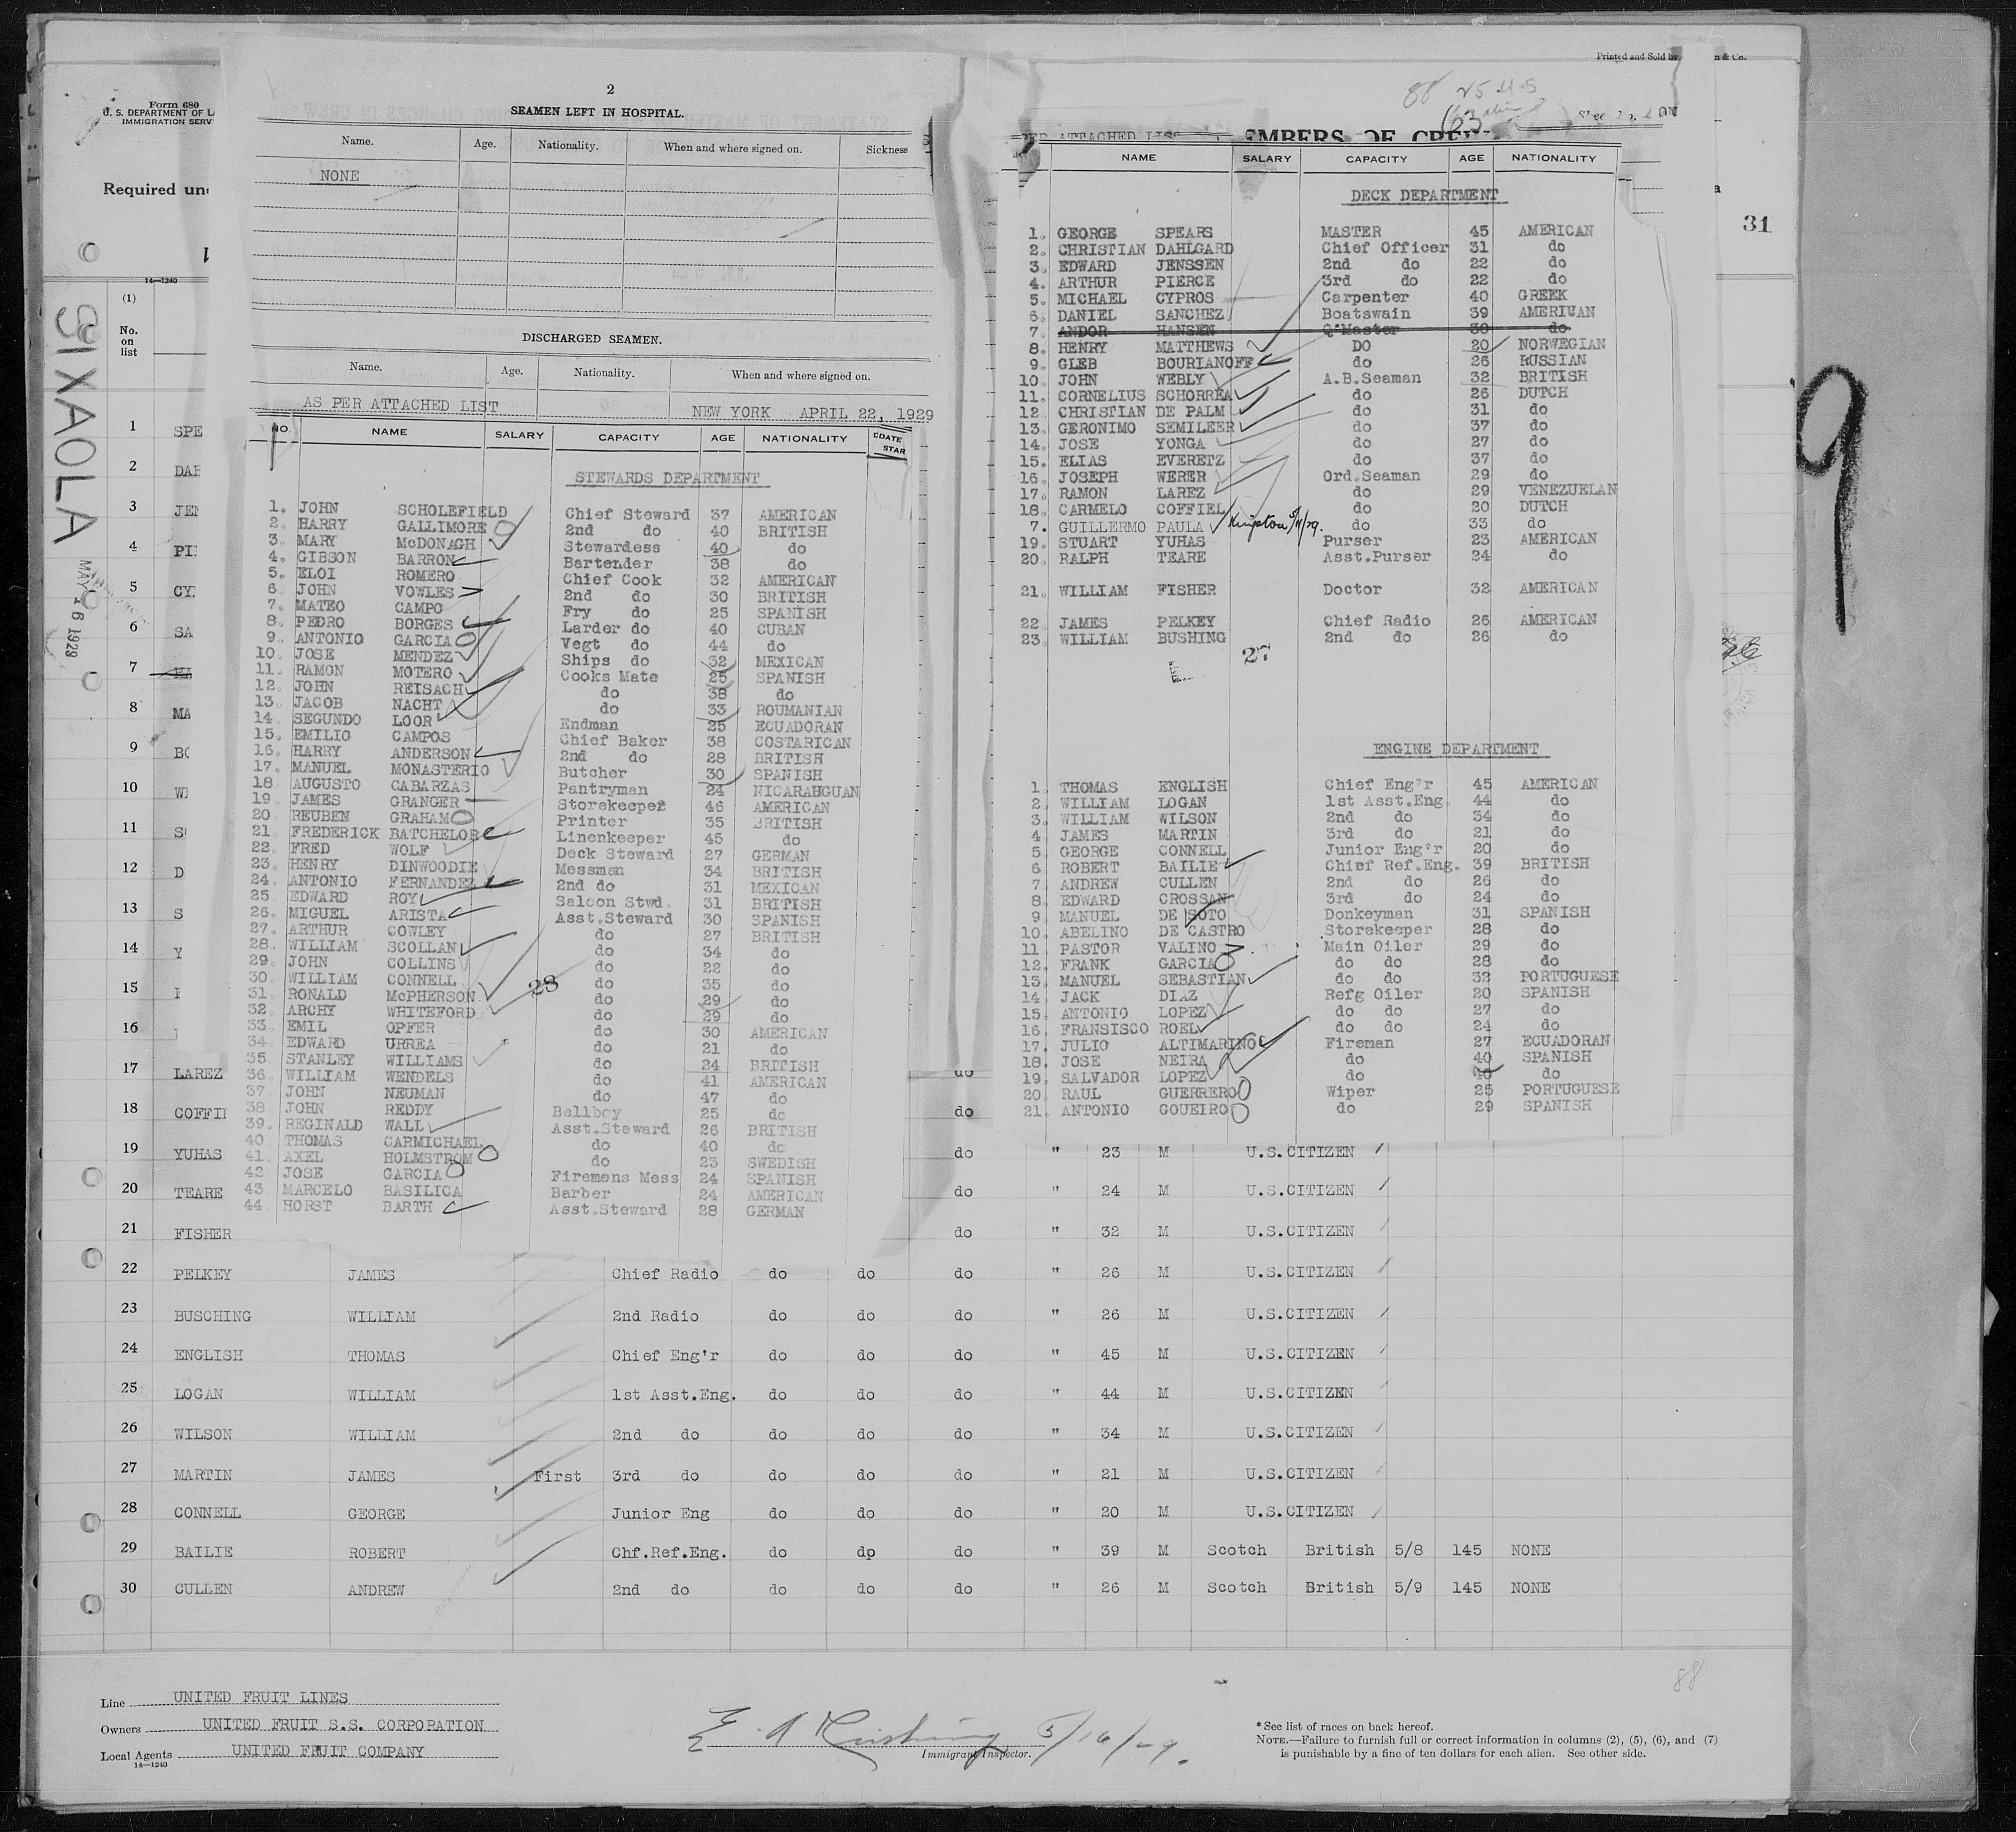 Printed and Sold by
n & Co.
Form 680
U. S. DEPARTMENT OF LA
IMMIGRATION SERV
Required und
14—1240
(1)
No.
on
list
SIXAOLA
MAY 16 1929
2
SEAMEN LEFT IN HOSPITAL.
Name. Age. Nationality. When and where signed on. Sickness
NONE
DISCHARGED SEAMEN.
Name. Age. Nationality. When and where signed on.
AS PER ATTACHED LIST NEW YORK APRIL 22, 1929
NO. NAME SALARY CAPACITY AGE NATIONALITY
STEWARDS DEPARTMENT
1. JOHN SCHOLEFIELD Chief Steward 37 AMERICAN
2. HARRY GALLIMORE 2nd do 40 BRITISH
3. MARY McDONAGH Stewardess 40 do
4. GIBSON BARRON Bartender 38 do
5. ELOI ROMERO Chief Cook 32 AMERICAN
6. JOHN VOWLES 2nd do 30 BRITISH
7. MATEO CAMPO Fry do 25 SPANISH
8. PEDRO BORGES Larder do 40 CUBAN
9. ANTONIO GARCIA Vegt do 44 do
10. JOSE MENDEZ Ships do 32 MEXICAN
11. RAMON MOTERO Cooks Mate 25 SPANISH
12. JOHN REISACH do 38 do
13. JACOB NACHT do 33 ROUMANIAN
14. SEGUNDO LOOR Endman 25 ECUADORAN
15. EMILIO CAMPOS Chief Baker 38 COSTARICAN
16. HARRY ANDERSON 2nd do 28 BRITISH
17. MANUEL MONASTERIO Butcher 30 SPANISH
18 AUGUSTO CABARZAS Pantryman 24 NICARAHGUAN
19. JAMES GRANGER Storekeeper 46 AMERICAN
20. REUBEN GRAHAM Printer 35 BRITISH
21. FREDERICK BATCHELOR Linenkeeper 45 do
22. FRED WOLF Deck Steward 27 GERMAN
23. HENRY DINWOODIE Messman 34 BRITISH
24. ANTONIO FERNANDEZ 2nd do 31 MEXICAN
25. EDWARD ROY Saloon Stwd. 31 BRITISH
26. MIGUEL ARISTA Asst.Steward 30 SPANISH
27. ARTHUR COWLEY do 27 BRITISH
28. WILLIAM SCOLLAN do 34 do
29. JOHN COLLINS do 22 do
30. WILLIAM CONNELL do 35 do
31. RONALD McPHERSON do 29 do
32. ARCHY WHITEFORD do 29 do
33. EMIL OPFER do 30 AMERICAN
34. EDWARD URREA do 21 do
35. STANLEY WILLIAMS do 24 BRITISH
36 WILLIAM WENDELS do 41 AMERICAN
37. JOHN NEUMAN do 47 do
38 JOHN REDDY Bellboy 25 do
39. REGINALD WALL Asst.Steward 26 BRITISH
40. THOMAS CARMICHAEL do 40 do
41. AXEL HOLMSTROM do 23 SWEDISH
42. JOSE GARCIA Firemens Mess 24 SPANISH
43. MARCELO BASILICA Barber 24 AMERICAN
44. HORST BARTH Asst.Steward 28 GERMAN
28
PER ATTACHED LIST EMBERS OF CREW
NAME SALARY CAPACITY AGE NATIONALITY
DECK DEPARTMENT
1. GEORGE SPEARS MASTER 45 AMERICAN
2. CHRISTIAN DAHLGARD Chief Officer 31 do
3. EDWARD JENSSEN 2nd do 22 do
4. ARTHUR PIERCE 3rd do 22 do
5. MICHAEL CYPROS Carpenter 40 GREEK
6. DANIEL SANCHEZ Boatswain 39 AMERIUAN
7. ANDOR HANSEN Q'Master 30 do
8. HENRY MATTHEWS DO 20 NORWEGIAN
9. GLEB BOURIANOFF do 26 RUSSIAN
10. JOHN WEBLY A.B.Seaman 32 BRITISH
11. CORNELIUS SCHORREA do 26 DUTCH
12 CHRISTIAN DE PALM do 31 do
13. GERONIMO SEMILEER do 37 do
14. JOSE YONGA do 27 do
15. ELIAS EVERETZ do 37 do
16. JOSEPH WERER Ord.Seaman 29 do
17. RAMON LAREZ do 29 VENEZUELAN
18. CARMELO COFFIEL do 20 DUTCH
7. GUILLERMO PAULA Kingston 5/11/29. do 33 do
19. STUART YUHAS Purser 23 AMERICAN
20. RALPH TEARE Asst.Purser 24 do
21. WILLIAM FISHER Doctor 32 AMERICAN
22. JAMES PELKEY Chief Radio 26 AMERICAN
23. WILLIAM BUSHING 2nd do 26 do
27
ENGINE DEPARTMENT
1. THOMAS ENGLISH Chief Eng'r 45 AMERICAN
2. WILLIAM LOGAN 1st Asst.Eng. 44 do
3. WILLIAM WILSON 2nd do 34 do
4 JAMES MARTIN 3rd do 21 do
5 GEORGE CONNELL Junior Eng'r 20 do
6 ROBERT BAILIE Chief Ref.Eng. 39 BRITISH
7 ANDREW CULLEN 2nd do 26 do
8. EDWARD CROSSAN 3rd do 24 do
9 MANUEL DE SOTO Donkeyman 31 SPANISH
10. ABELINO DE CASTRO Storekeeper 28 do
11 PASTOR VALINO Main Oiler 29 do
12. FRANK GARCIA do do 28 do
13. MANUEL SEBASTIAN do do 32 PORTUGUESE
14 JACK DIAZ Refg Oiler 20 SPANISH
15. ANTONIO LOPEZ do do 27 do
16. FRANSISCO ROEL do do 24 do
17. JULIO ALTIMARINO Fireman 27 ECUADORAN
18. JOSE NEIRA do 40 SPANISH
19. SALVADOR LOPEZ do 40 do
20. RAUL GUERRERO Wiper 25 PORTUGUESE
21. ANTONIO GOUEIRO do 29 SPANISH
31
9
1 SPE
2 DAH
3 JEN
4 PI
5 CY
6 SA
7 HA
8 MA
9 BO
10 W
11 S
12 D
13 S
14 Y
15
16
17 LAREZ do
18 COFFI do
19 YUHAS do " 23 M U.S.CITIZEN
20 TEARE do " 24 M U.S.CITIZEN
21 FISHER do " 32 M U.S.CITIZEN
22 PELKEY JAMES Chief Radio do do do " 26 M U.S.CITIZEN
23 BUSCHING WILLIAM 2nd Radio do do do " 26 M U.S.CITIZEN
24 ENGLISH THOMAS Chief Eng'r do do do " 45 M U.S.CITIZEN
25 LOGAN WILLIAM 1st Asst.Eng. do do do " 44 M U.S.CITIZEN
26 WILSON WILLIAM 2nd do do do do " 34 M U.S.CITIZEN
27 MARTIN JAMES First 3rd do do do do " 21 M U.S.CITIZEN
28 CONNELL GEORGE Junior Eng do do do " 20 M U.S.CITIZEN
29 BAILIE ROBERT Chf.Ref.Eng. do dp do " 39 M Scotch British 5/8 145 NONE
30 CULLEN ANDREW 2nd do do do do " 26 M Scotch British 5/9 145 NONE
88
Line UNITED FRUIT LINES
Owners UNITED FRUIT S.S. CORPORATION
Local Agents UNITED FRUIT COMPANY
14—1240
Immigrant Inspector.
* See list of races on back hereof.
NOTE.—Failure to furnish full or correct information in columns (2), (5), (6), and (7)
is punishable by a fine of ten dollars for each alien. See other side.